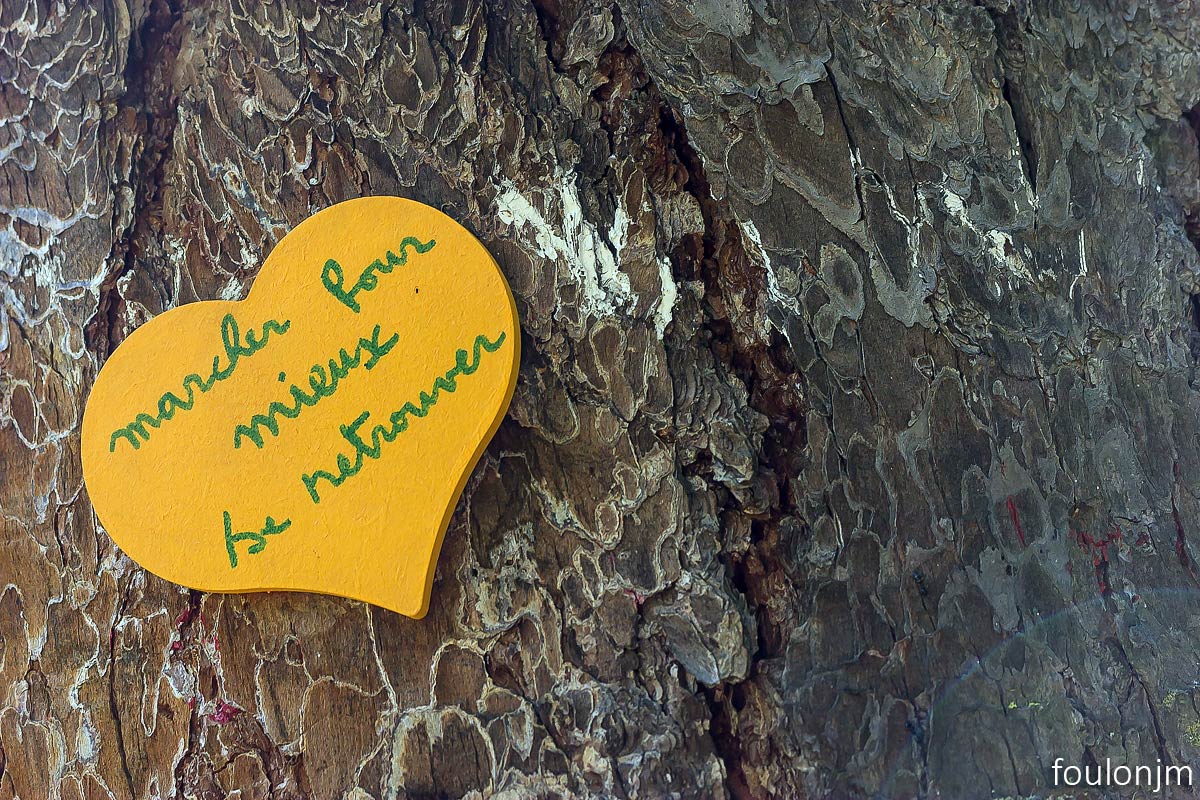 marcher pour
mieux
se retrouver
foulonjm